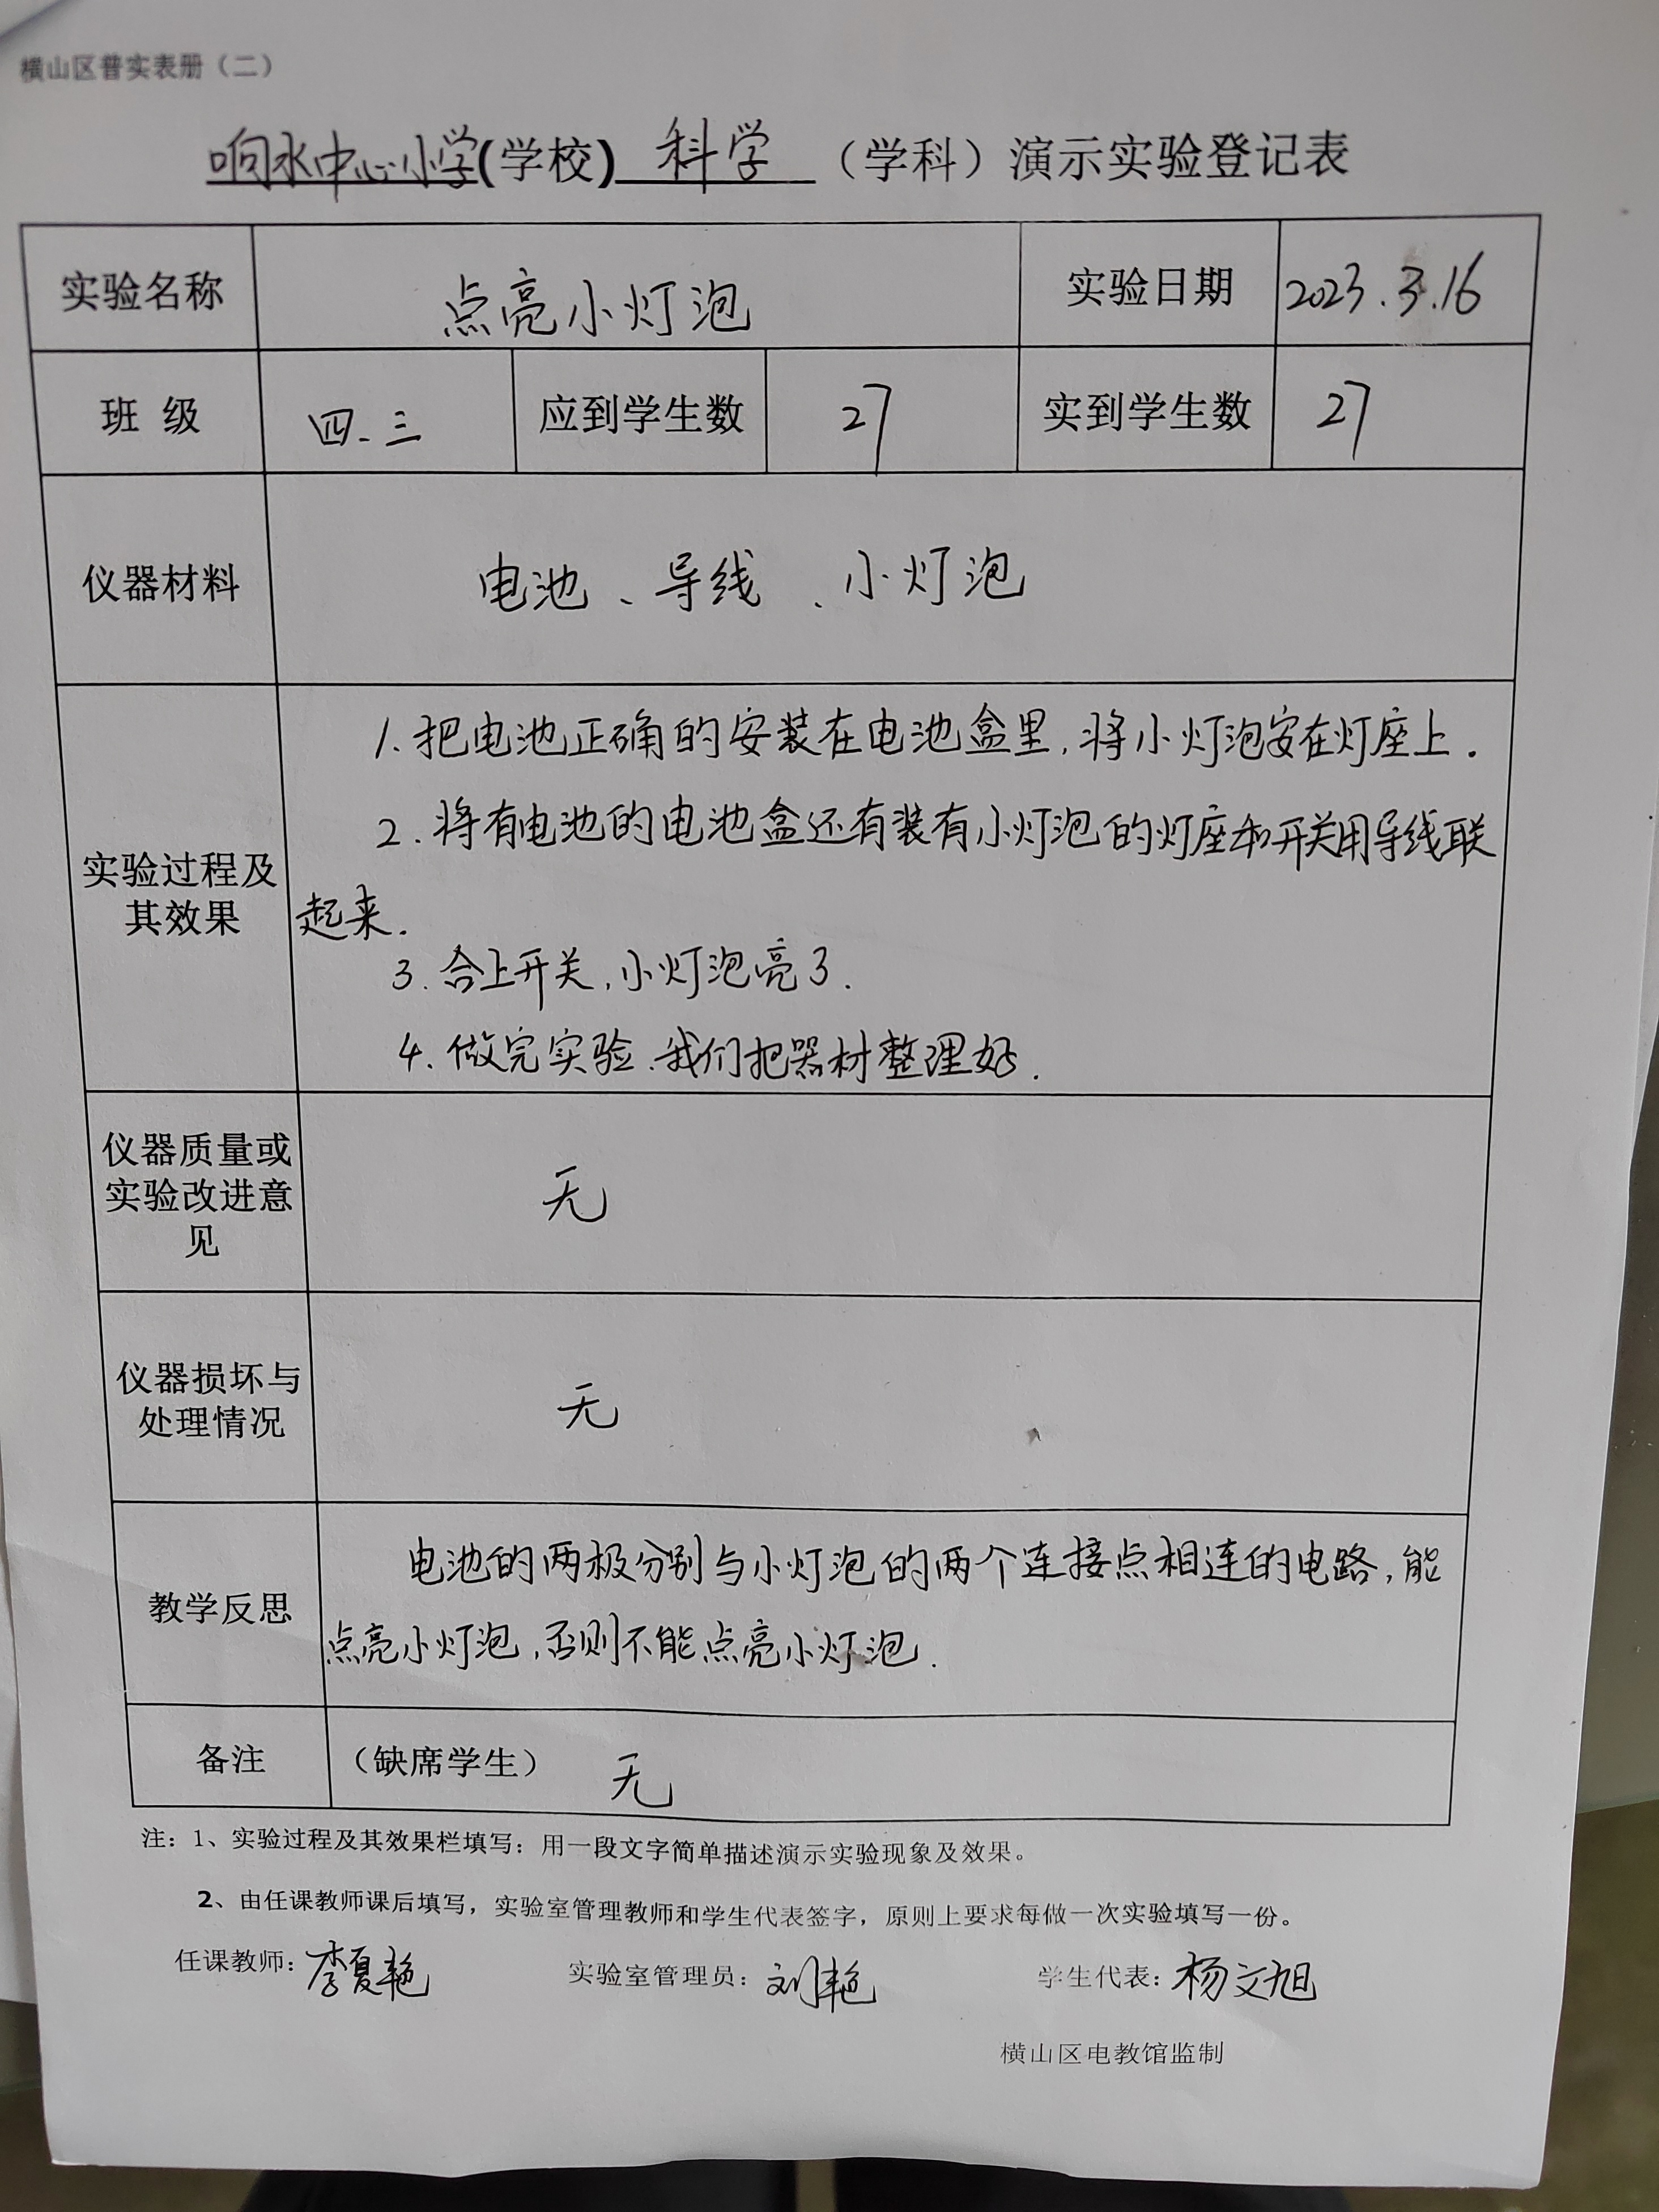 横山区普实表册（二）
响水中心小学(学校) 科学 （学科）演示实验登记表
实验名称 点亮小灯泡 实验日期 2023.3.16
班 级 四、三 应到学生数 27 实到学生数 27
仪器材料 电池、导线、小灯泡
实验过程及
其效果
1.把电池正确的安装在电池盒里,将小灯泡安在灯座上.
2.将有电池的电池盒还有装有小灯泡的灯座和开关用导线联
起来.
3.合上开关,小灯泡亮了.
4.做完实验、我们把器材整理好.
仪器质量或
实验改进意
见
无
仪器损坏与
处理情况
无
教学反思
电池的两极分别与小灯泡的两个连接点相连的电路,能
点亮小灯泡,否则不能点亮小灯泡.
备注 （缺席学生） 无
注：1、实验过程及其效果栏填写：用一段文字简单描述演示实验现象及效果。
2、由任课教师课后填写，实验室管理教师和学生代表签字，原则上要求每做一次实验填写一份。
任课教师：李夏艳 实验室管理员：刘艳 学生代表：杨文旭
横山区电教馆监制